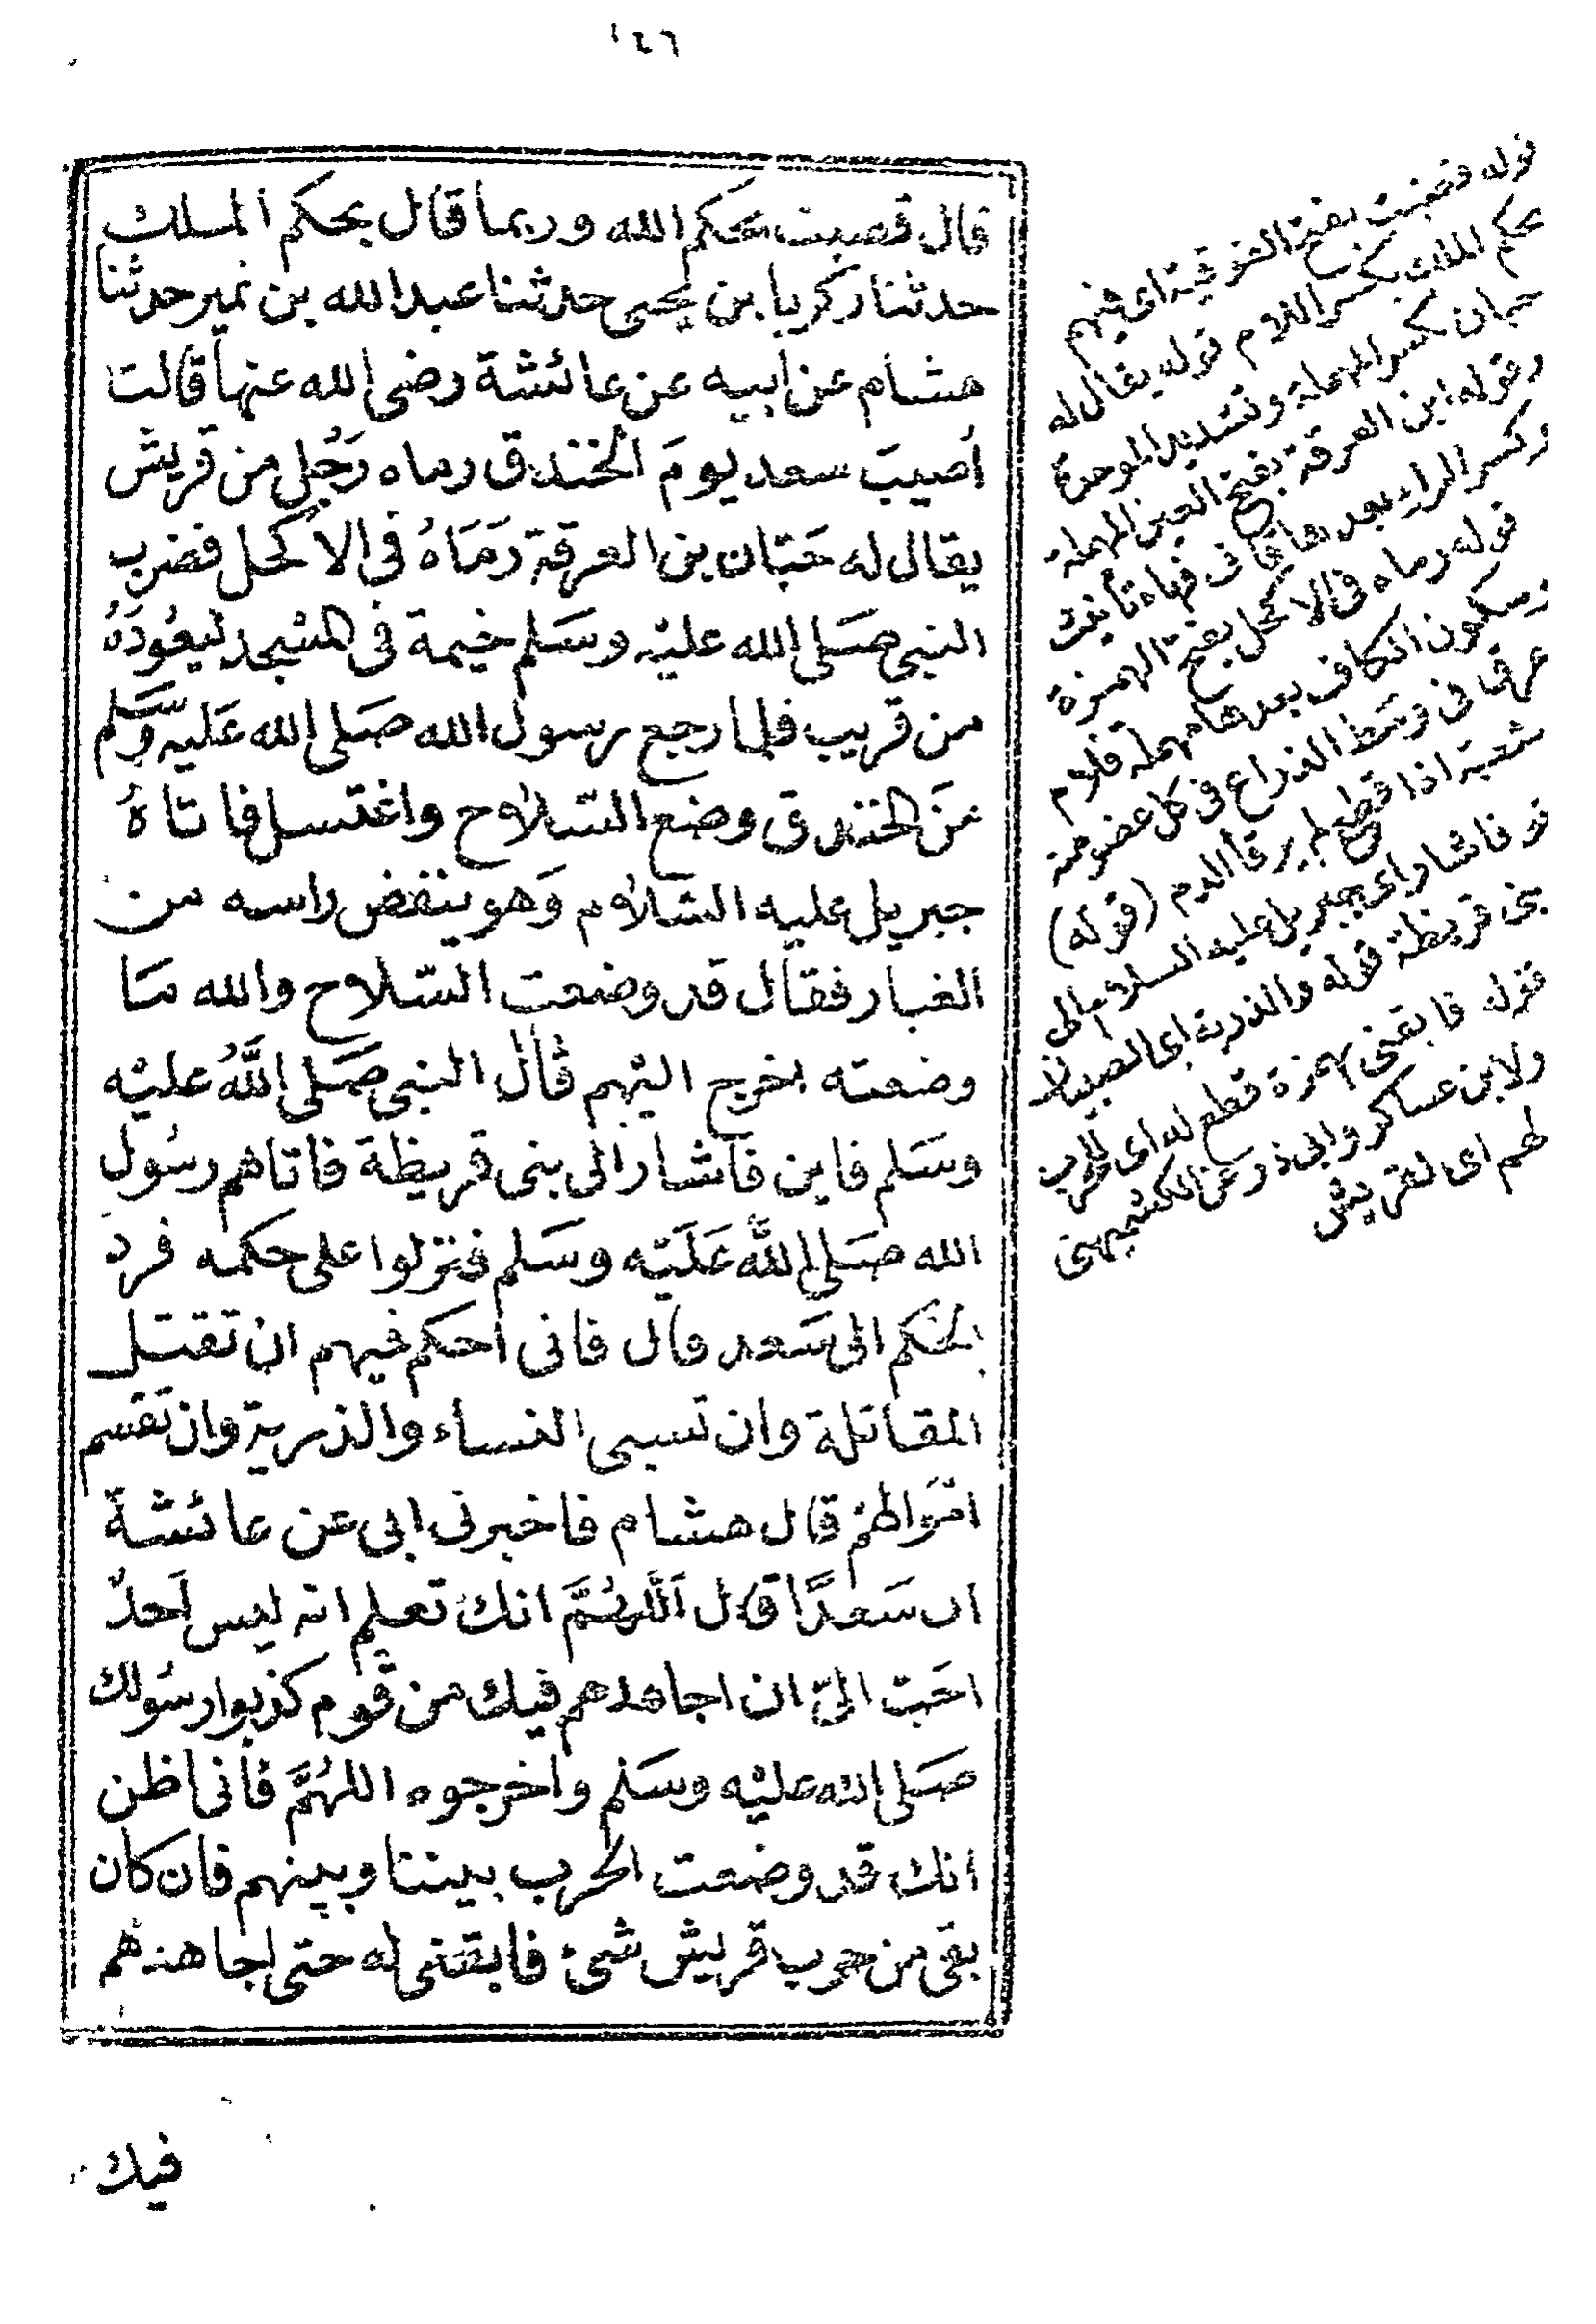 ١٤٦
قال قضيت بحكم الله وربما قال بحكم الملك
حدثنا زكريا بن يحيى حدثنا عبد الله بن نمير حدثنا
هشام عن ابيه عن عائشة رضى الله عنها قالت
أصيب سعد يومَ الخندق رماه رَجُل من قريش
يقال له حَبّان بن العرقة رَمَاهُ فى الاكحل فضرب
النبى صَلى الله عليْه وسَلم خيمة فى المسْجد ليَعُودَهُ
من قريب فلما رجع رسول الله صَلى الله عَليْه وَسَلم
منَ الخندق وضع السّلاح واغتسل فاتاهُ
جبريل عليه السّلام وَهو ينفض راسه من
الغبار فقال قد وضعت السّلاح والله مَا
وضعته اخرج اليْهم قال النبى صَلى اللَّهُ عليْه
وسَلم فاين فاشار الى بنى قريظة فاتاهم رسُول
الله صَلى اللَّه عَلَيْه وسَلم فنزلوا على حكمه فرد
الحُكم الى سَعد قال فانى احكم فيهم ان تقتل
المقاتلة وان تسبى النساء والذرية وان تقسم
امْوَالهمْ قال هشام فاخبرنى ابى عن عائشة
ان سَعدًا قال اللَّهُمَّ انك تعلم انه ليس اَحدٌ
احَبّ الىّ ان اجاهدهم فيك من قوم كذبوا رسُولك
صَلى الله عليْه وسَلم واخرجوه اللهُمَّ فانى اظن
انك قد وضعت الحرب بيننا وبينهم فان كان
بقى من حرب قريش شئ فابقنى له حتى اجاهدهم
فيك
قوله بفتح الفوقية اى فيهم
بحكم الملك بكسر اللام قوله يقال له
حبان بكسر المهملة وتشديد الموحدة
وقوله ابن العرقة بفتح العين المهملة
وكسر الراء بعدها قاف فهاء تأنيث
قوله رماه فى الاكحل بفتح الهمزة
وسكون الكاف بعدها مهملة فلام
عرق فى وسَط الذراع فى كل عضو منه
شعبة اذا قطع لم يرقأ الدم (قوله)
فاشار اى جبريل عليه السلام الى
بنى قريظة قوله والذرية اى الصبيان
قوله فابقنى بهمزة قطع له اى للحرب
ولابن عساكر وابى ذر عن الكشميهنى
لهم اى لقريش